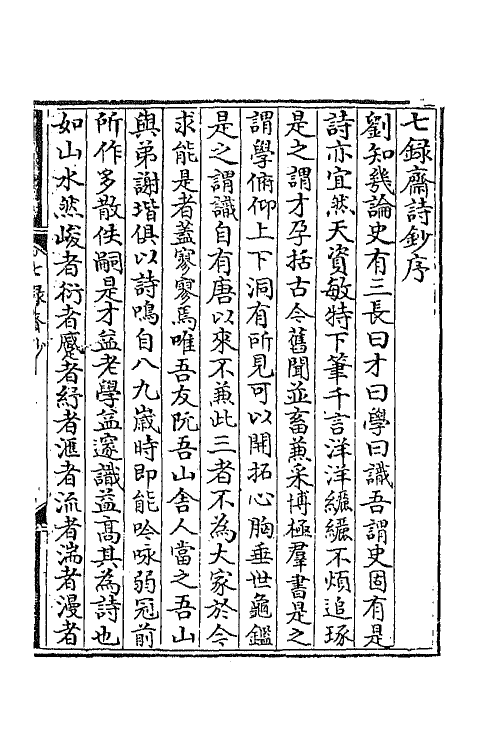 七録齋詩鈔序
劉知幾論史有三長曰才曰學曰識吾謂史固有是
詩亦宜然天資敏特下筆千言洋洋纚纚不煩追琢
是之謂才孕括古今舊聞並畜兼采博極羣書是之
謂學俯仰上下洞有所見可以開拓心胸垂世龜鑑
是之謂識自有唐以來不兼此三者不為大家於今
求能是者蓋寥寥焉唯吾友阮吾山舍人當之吾山
與弟謝堦俱以詩鳴自八九歲時即能吟咏弱冠前
所作多散佚嗣是才益老學益邃識益高其為詩也
如山水然峻者衍者蹙者紓者滙者流者湍者漫者
七録齋鈔